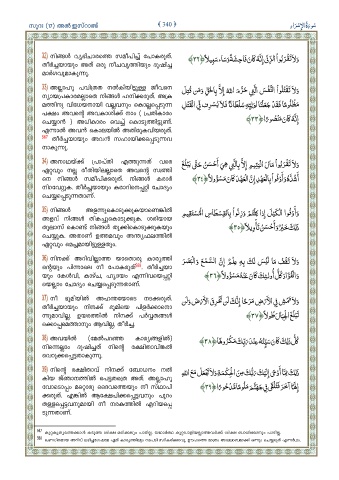 സൂറ (17) അൽ ഇസ്റാഅ്
340
سُورَةُ الْإِسْرَاءِ
32) നിങ്ങൾ വ്യഭിചാരത്തെ സമീപിച്ച് പോകരുത്.
തീർച്ചയായും അത് ഒരു നീചവൃത്തിയും ദുഷിച്ച
മാർഗവുമാകുന്നു.
وَلَا تَقْرَبُوا الزِّنَىٰ إِنَّهُ كَانَ فَاحِشَةً وَسَاءَ سَبِيلًا ﴿٣٢﴾
33) അല്ലാഹു പവിത്രത നൽകിയിട്ടുള്ള ജീവനെ
ന്യായപ്രകാരമല്ലാതെ നിങ്ങൾ ഹനിക്കരുത്. അക്ര
മത്തിനു വിധേയനായി വല്ലവനും കൊല്ലപ്പെടുന്ന
പക്ഷം അവന്റെ അവകാശിക്ക് നാം ( പ്രതികാരം
ചെയ്യാൻ ) അധികാരം വെച്ച് കൊടുത്തിട്ടുണ്ട്.
എന്നാൽ അവൻ കൊലയിൽ അതിരുകവിയരുത്.
തീർച്ചയായും അവൻ സഹായിക്കപ്പെടുന്നവ
നാകുന്നു.
وَلَا تَقْتُلُوا النَّفْسَ الَّتِي حَرَّمَ اللَّهُ إِلَّا بِالْحَقِّ وَمَن قُتِلَ
مَظْلُومًا فَقَدْ جَعَلْنَا لِوَلِيِّهِ سُلْطَانًا فَلَا يُسْرِف فِّي الْقَتْلِ
إِنَّهُ كَانَ مَنصُورًا ﴿٣٣﴾
34) അനാഥയ്ക്ക് പ്രാപ്തി എത്തുന്നത് വരെ
ഏറ്റവും നല്ല രീതിയിലല്ലാതെ അവന്റെ സ്വത്തി
നെ നിങ്ങൾ സമീപിക്കരുത്. നിങ്ങൾ കരാർ
നിറവേറ്റുക. തീർച്ചയായും കരാറിനെപ്പറ്റി ചോദ്യം
ചെയ്യപ്പെടുന്നതാണ്.
وَلَا تَقْرَبُوا مَالَ الْيَتِيمِ إِلَّا بِالَّتِي هِيَ أَحْسَنُ حَتَّىٰ يَبْلُغَ
أَشُدَّهُ وَأَوْفُوا بِالْعَهْدِ إِنَّ الْعَهْدَ كَانَ مَسْئُولًا ﴿٣٤﴾
35) നിങ്ങൾ അളന്നുകൊടുക്കുകയാണെങ്കിൽ
അളവ് നിങ്ങൾ തികച്ചുകൊടുക്കുക. ശരിയായ
തുലാസ് കൊണ്ട് നിങ്ങൾ തൂക്കിക്കൊടുക്കുകയും
ചെയ്യുക. അതാണ് ഉത്തമവും അന്ത്യഫലത്തിൽ
ഏറ്റവും മെച്ചമായിട്ടുള്ളതും.
وَأَوْفُوا الْكَيْلَ إِذَا كِلْتُمْ وَزِنُوا بِالْقِسْطَاسِ الْمُسْتَقِيمِ
ذَٰلِكَ خَيْرٌ وَأَحْسَنُ تَأْوِيلًا ﴿٣٥﴾
36) നിനക്ക് അറിവില്ലാത്ത യാതൊരു കാര്യത്തി
ന്റെയും പിന്നാലെ നീ പോകരുത്. തീർച്ചയാ
യും കേൾവി, കാഴ്ച, ഹൃദയം എന്നിവയെപ്പറ്റി
യെല്ലാം ചോദ്യം ചെയ്യപ്പെടുന്നതാണ്.
وَلَا تَقْفُ مَا لَيْسَ لَكَ بِهِ عِلْمٌ إِنَّ السَّمْعَ وَالْبَصَرَ
وَالْفُؤَادَ كُلُّ أُولَٰئِكَ كَانَ عَنْهُ مَسْئُولًا ﴿٣٦﴾
37) നീ ഭൂമിയിൽ അഹന്തയോടെ നടക്കരുത്.
തീർച്ചയായും നിനക്ക് ഭൂമിയെ പിളർക്കാനൊ
ന്നുമാവില്ല. ഉയരത്തിൽ നിനക്ക് പർവ്വതങ്ങൾ
ക്കൊപ്പമെത്താനും ആവില്ല, തീർച്ച.
وَلَا تَمْشِ فِي الْأَرْضِ مَرَحًا إِنَّكَ لَن تَخْرِقَ الْأَرْضَ وَلَن
تَبْلُغَ الْجِبَالَ طُولًا ﴿٣٧﴾
38) അവയിൽ (മേൽപറഞ്ഞ കാര്യങ്ങളിൽ)
നിന്നെല്ലാം ദുഷിച്ചത് നിന്റെ രക്ഷിതാവിങ്കൽ
വെറുക്കപ്പെട്ടതാകുന്നു.
كُلُّ ذَٰلِكَ كَانَ سَيِّئُهُ عِندَ رَبِّكَ مَكْرُوهًا ﴿٣٨﴾
39) നിന്റെ രക്ഷിതാവ് നിനക്ക് ബോധനം നൽ
കിയ ജ്ഞാനത്തിൽ പെട്ടതത്രെ അത്. അല്ലാഹു
വോടൊപ്പം മറ്റൊരു ദൈവത്തെയും നീ സ്ഥാപി
ക്കരുത്. എങ്കിൽ ആക്ഷേപിക്കപ്പെട്ടവനും പുറം
തള്ളപ്പെട്ടവനുമായി നീ നരകത്തിൽ എറിയപ്പെ
ടുന്നതാണ്.
ذَٰلِكَ مِمَّا أَوْحَىٰ إِلَيْكَ رَبُّكَ مِنَ الْحِكْمَةِ وَلَا تَجْعَلْ مَعَ اللَّهِ
إِلَٰهًا آخَرَ فَتُلْقَىٰ فِي جَهَنَّمَ مَلُومًا مَّدْحُورًا ﴿٣٩﴾